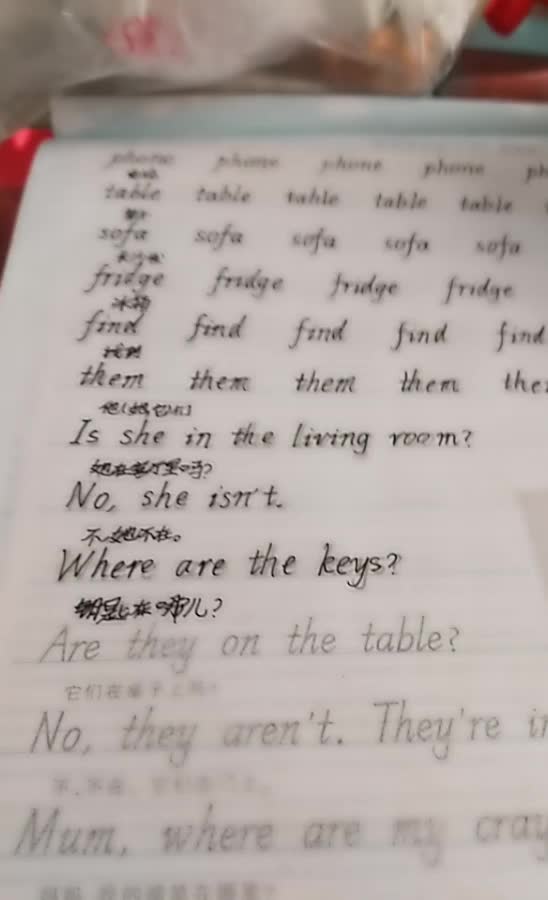 phone phone phone phone ph
table table table table table
sofa sofa sofa sofa sofa
fridge fridge fridge fridge
冰箱
find find find find find
找到
them them them them the
他(她它)们
Is she in the living room?
她在客厅里吗?
No, she isn't.
不,她不在。
Where are the keys?
钥匙在哪儿?
Are they on the table?
它们在桌子上吗?
No, they aren't. They're in
Mum, where are my cray